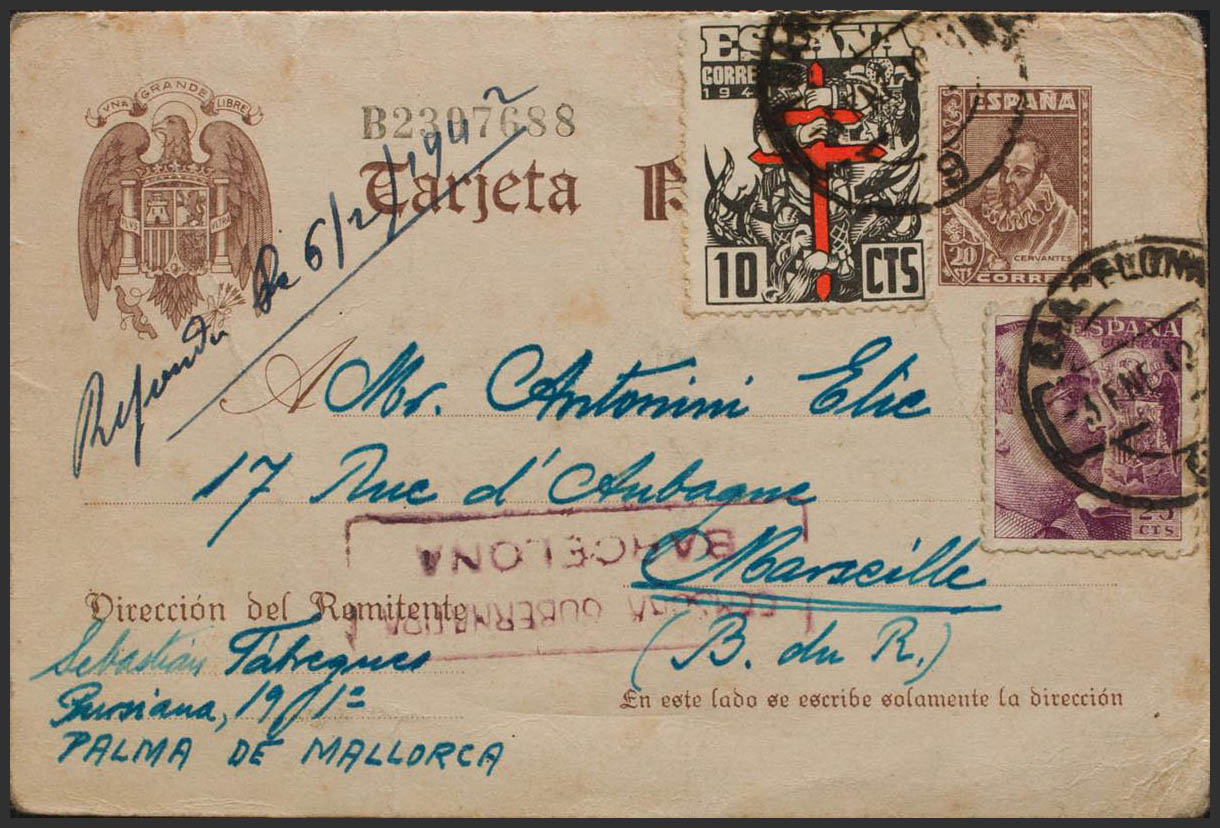 UNA GRANDE LIBRE
B2307688
Tarjeta P
ESPAÑA
CORRE
194
10 CTS
ESPAÑA
20
CTS
CERVANTES
CORRE
BARCELONA
3 ENE
ESPAÑA
CORREOS
25
CTS
6/2/1942
A Mr. Antonini Elie
17 Rue d'Aubagne
Marseille
(B. du R.)
CENSURA GUBERNATIVA
BARCELONA
Dirección del Remitente
Sebastián
19, 1º
PALMA DE MALLORCA
En este lado se escribe solamente la dirección